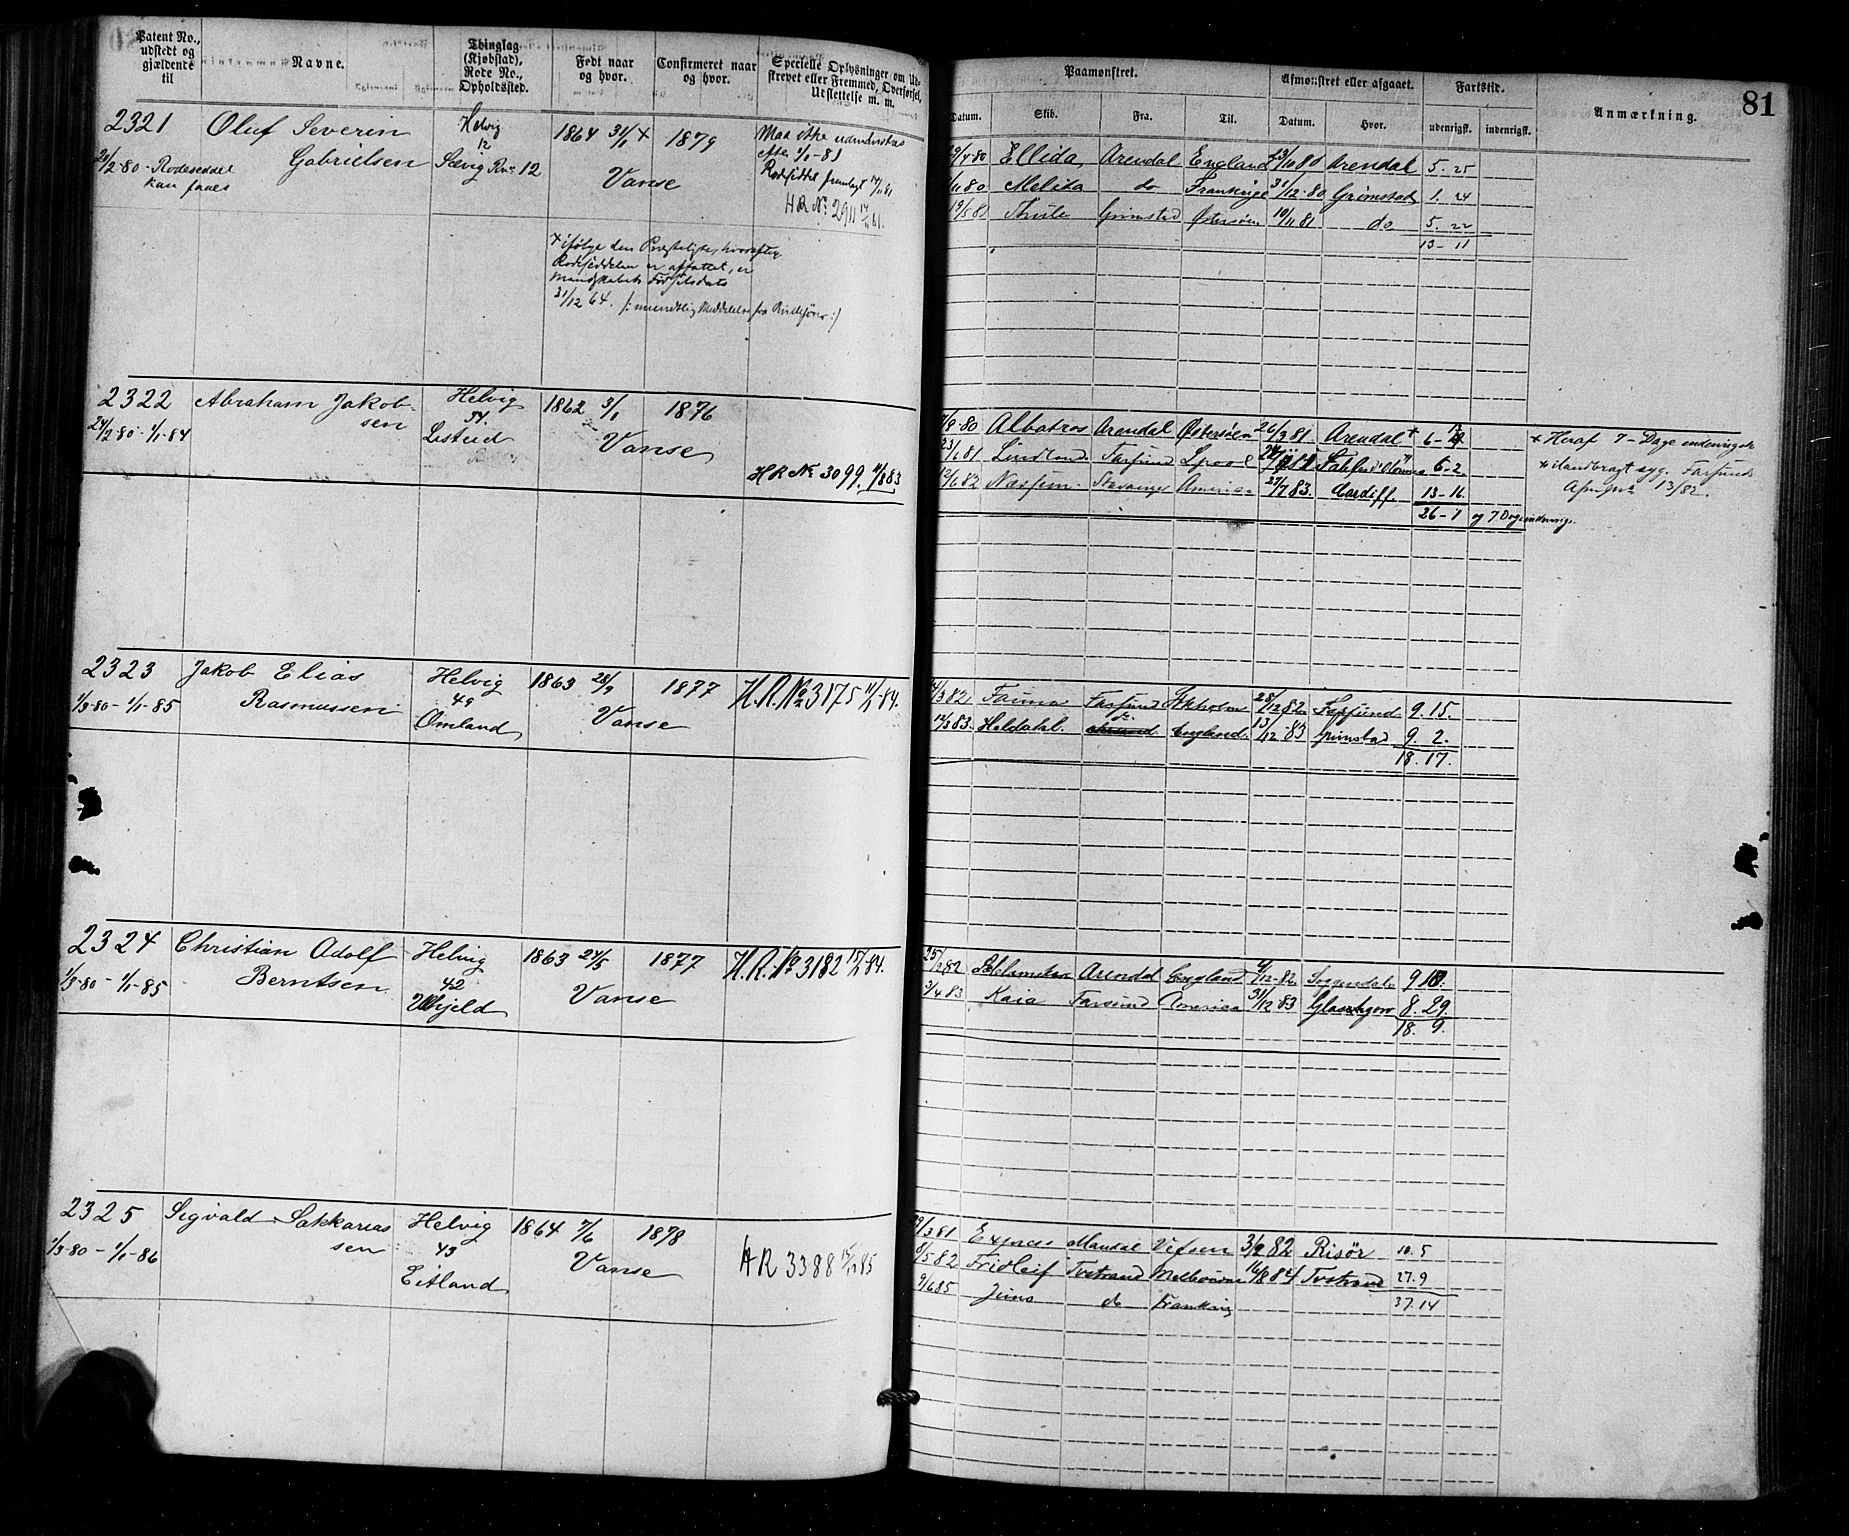 Patent No.,
udstedt og
gjældende
til
Navne.
Thinglag
(Kjøbstad),
Rode No.,
Opholdssted.
Født naar
og hvor.
Confirmeret naar
og hvor.
Specielle Oplysninger om Ud-
skrevet eller Fremmed, Overførsel,
Udslettelse m. m.
2321
Oluf Severin
Gabrielsen
Helvig
12
Sævig Rn 12
1864 31/1 +
Vanse
1879
Maa ikke udmønstres
efter 1/1-81
Rodesiddel fremlagt 14/11 81
HR No 2911
2-80 - Rodeseddel
kan faaes
+ ifølge den Presteliste, hvorefter
Rodeseddelen er affattet, er
Mandskabets Fødselsdato
31/12 64. /: mundtlig Meddelelse fra :/
2322
24/2-80 - 1/1-84
Abraham Jakob-
sen
Helvig
54.
Listeid
1862 3/1
Vanse
1876
HR No 3099. 11/8 83
2323
1/3-80 - 1/1-85
Jakob Elias
Rasmussen
Helvig
49
Omland
1863 28/9
Vanse
1877
H.R. No 3175 11/1-84.
2324
1/3-80 - 1/1-85
Christian Adolf
Berntsen
Helvig
42
1863 24/5
Vanse
1877
H.R. No 3182 15/1 84.
2325
1/3-80 - 1/1-86
Sigvald Sakkarias
sen
Helvig
43
Eitland
1864 7/6
Vanse
1878
HR 3388 15/12 85
81
Paamønstret.
Afmønstret eller afgaaet.
Fartstid.
Anmærkning.
Datum.
Skib.
Fra.
Til.
Datum.
Hvor.
udenrigsk.
indenrigsk.
29/4 80 Ellida Arendal England 23/10 80 Arendal 5. 25
/11 80 Melida do Frankrige 31/12-80 Grimstad 1. 24
19/5 81 Thule Grimstad Østersøen 10/11 81 do 5. 22
13-11
/9-80 Albatros Arendal Østersøen 26/3 81 Arendal + 6-
23/6 81 Farsund Lpool 6-2
19/6 82 Stavanger America 27/7 83. Cardiff. 13-16
26-1 og 7 Dage indenrigs.
+ Heraf 7-Dage indenrigsk
+ ilandbragt syg. Farsunds
13/82.
14/3 82 Fauna Farsund Stkholm 28/12 82. Farsund 9. 15.
12/3 83. Heldahl. do England. 13/12 83 Grimstad 9. 2.
18. 17.
25/2 82 Arendal England /12-82. Soggendal
3/4 83 Kaia Farsund America 31/12 83 Glasgow 8. 29.
18. 9.
29/3 81 Express Mandal Vefsen 3/2 82 Risør 10. 5
8/5 82 Fridleif Tvstrand Melbourne 16/8 84 Tvstrand 27. 9
9/6 85 Juno do Frankrig
37. 14